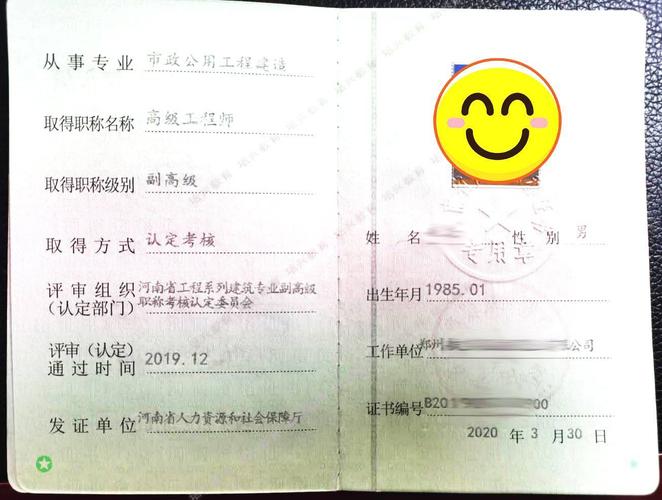 从事专业 市政公用工程建造
取得职称名称 高级工程师
取得职称级别 副高级
取得方式 认定考核
评审组织 河南省工程系列建筑专业副高级
(认定部门) 职称考核认定委员会
评审(认定)
通过时间 2019.12
发证单位 河南省人力资源和社会保障厅
专用章
姓名 性别 男
出生年月 1985.01
工作单位 郑州 公司
证书编号 B201 00
2020 年 3 月 30 日